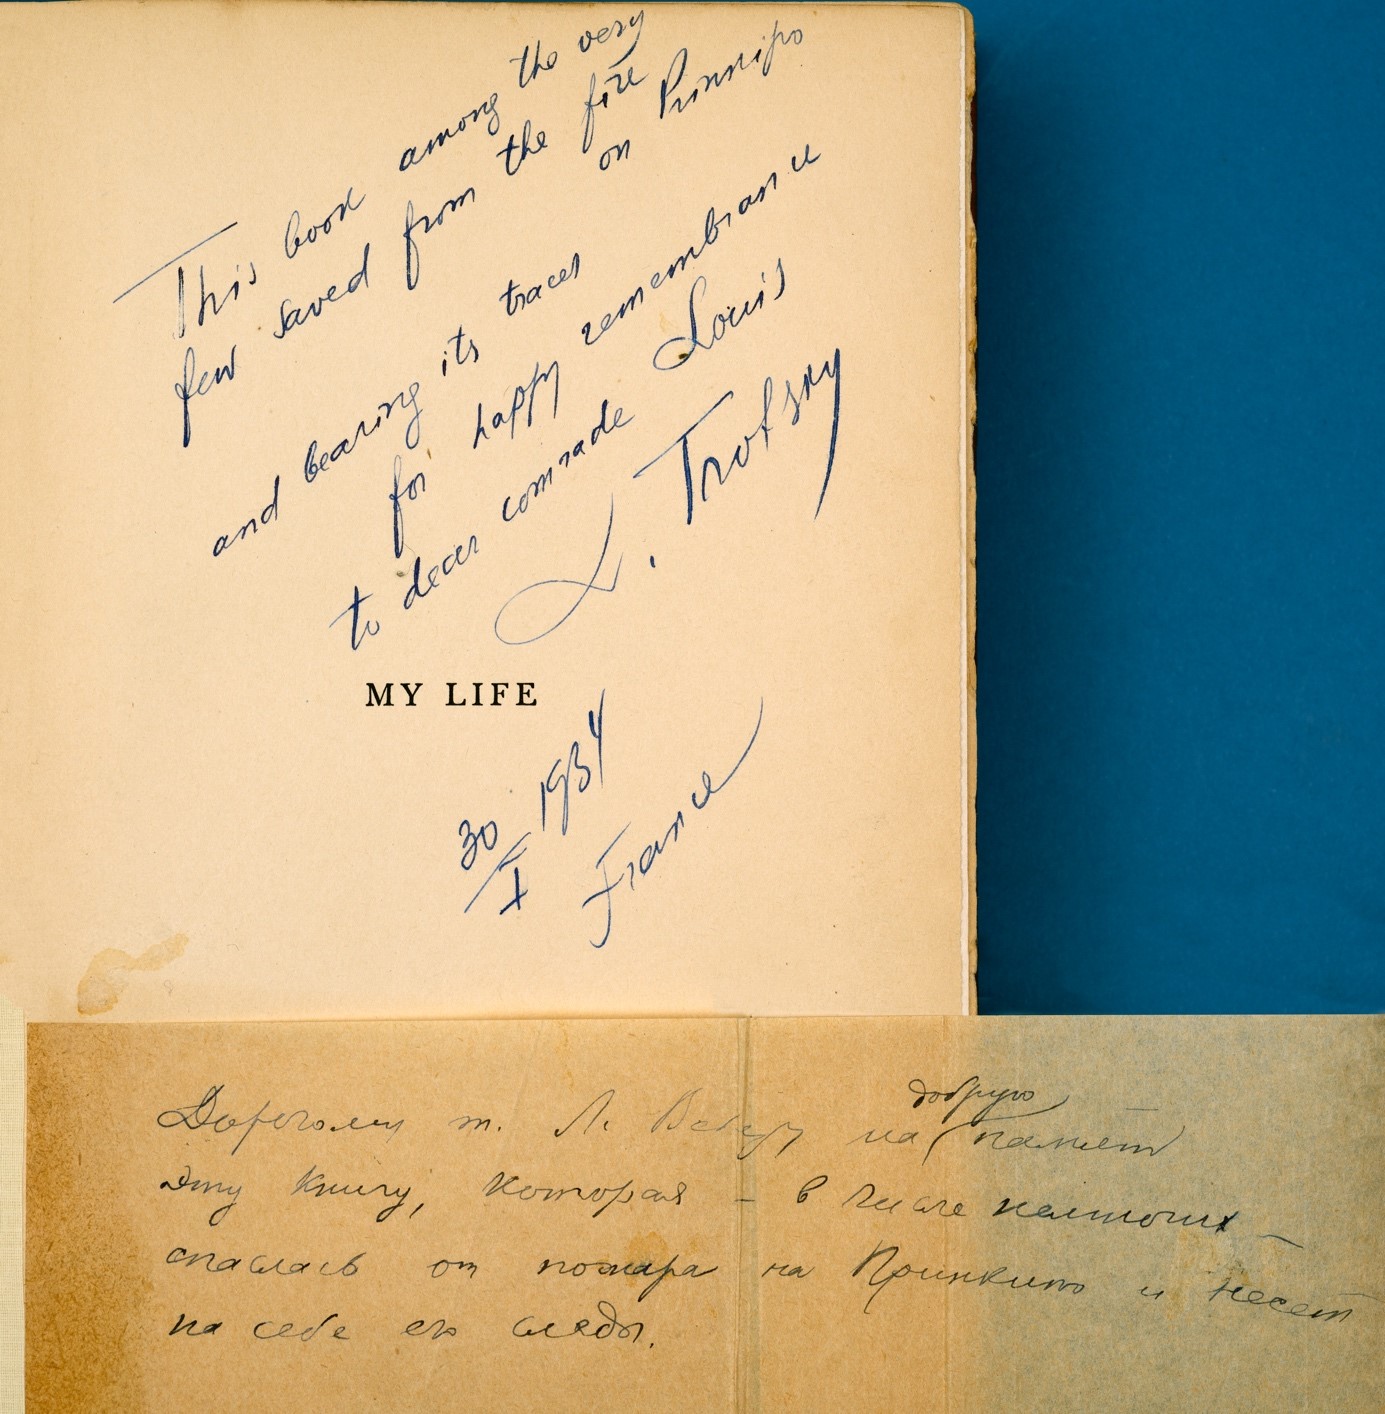 This book among the very
few saved from the fire
on Prinkipo
and bearing its traces
for happy remembrance
to dear comrade Louis
L. Trotsky
MY LIFE
30/X 1934
France
добрую
Дорогому т. Л. на память
эту книгу, которая – в числе немногих –
спаслась от пожара на Принкипо и несет
на себе его следы.